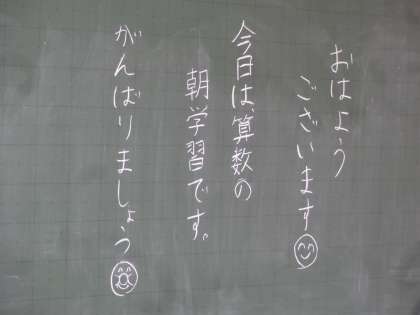 おはよう
ございます
今日は、算数の
朝学習です。
がんばりましょう